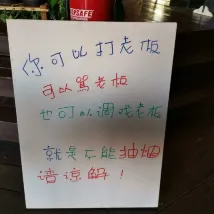 SAFE
你可以打老板
可以骂老板
也可以调戏老板
就是不能抽烟
请谅解!